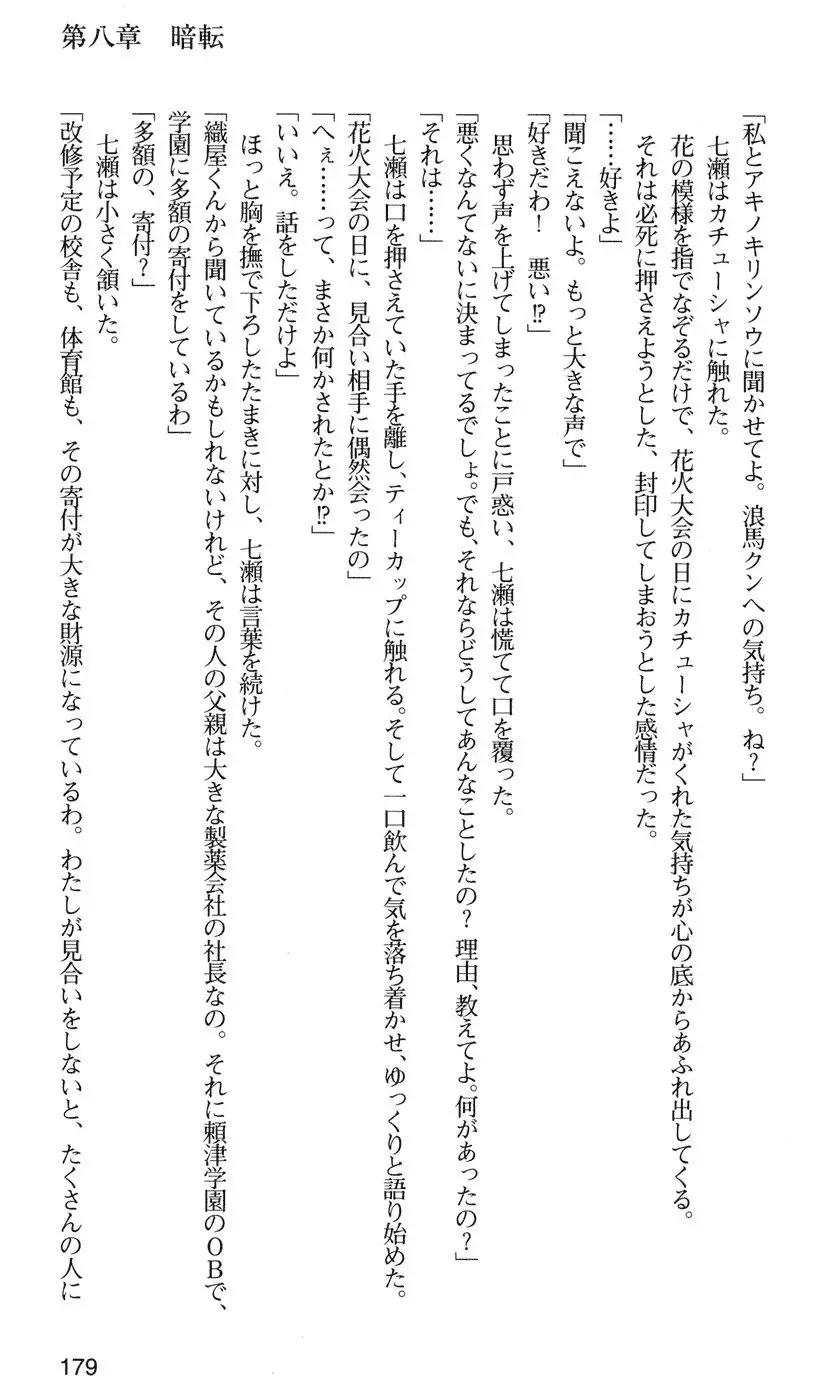 第八章　暗転
「私とアキノキリンソウに聞かせてよ。浪馬クンへの気持ち。ね？」
　七瀬はカチューシャに触れた。
　花の模様を指でなぞるだけで、花火大会の日にカチューシャがくれた気持ちが心の底からあふれ出してくる。
　それは必死に押さえようとした、封印してしまおうとした感情だった。
「……好きよ」
「聞こえないよ。もっと大きな声で」
「好きだわ！　悪い⁉」
　思わず声を上げてしまったことに戸惑い、七瀬は慌てて口を覆った。
「悪くなんてないに決まってるでしょ。でも、それならどうしてあんなことしたの？　理由、教えてよ。何があったの？」
「それは……」
　七瀬は口を押さえていた手を離し、ティーカップに触れる。そして一口飲んで気を落ち着かせ、ゆっくりと語り始めた。
「花火大会の日に、見合い相手に偶然会ったの」
「へぇ……って、まさか何かされたとか⁉」
「いいえ。話をしただけよ」
　ほっと胸を撫で下ろしたたまきに対し、七瀬は言葉を続けた。
「織屋くんから聞いているかもしれないけれど、その人の父親は大きな製薬会社の社長なの。それに頼津学園のＯＢで、
学園に多額の寄付をしているわ」
「多額の、寄付？」
　七瀬は小さく頷いた。
「改修予定の校舎も、体育館も、その寄付が大きな財源になっているわ。わたしが見合いをしないと、たくさんの人に
179